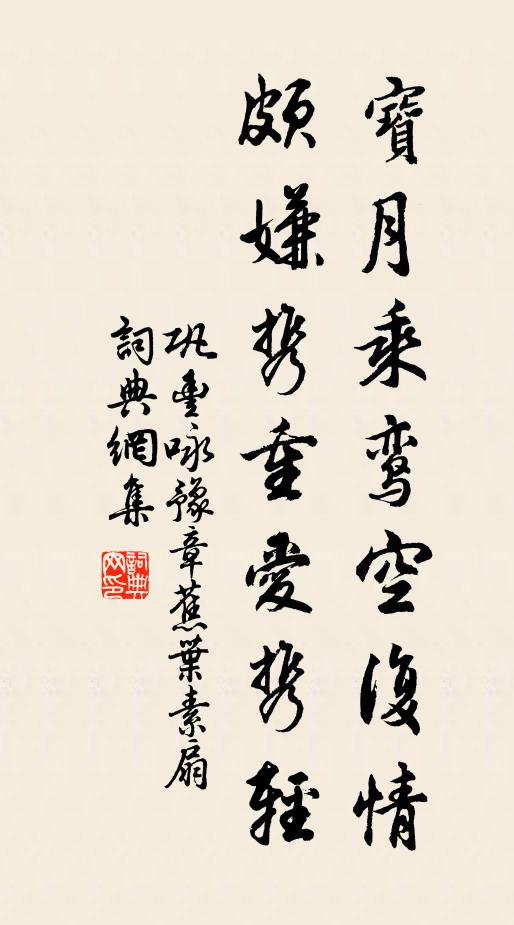 寶月乘鸾空復情
頗嫌携重愛携輕
巩豐咏豫章蕉葉素扇
詞典網集
詞典网印